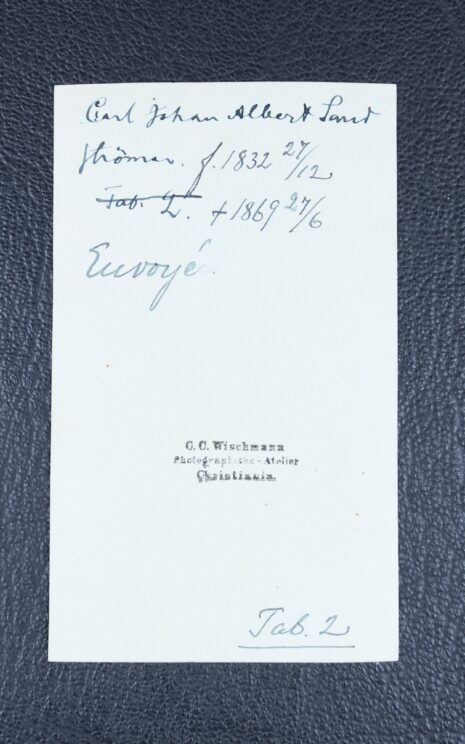 Carl Johan Albert Sand
strömer. f. 1832 27/12
Tab. 2. † 1869 27/6
Envoyé
C. C. Wischmann
Photographiske-Atelier
Christiania.
Tab. 2